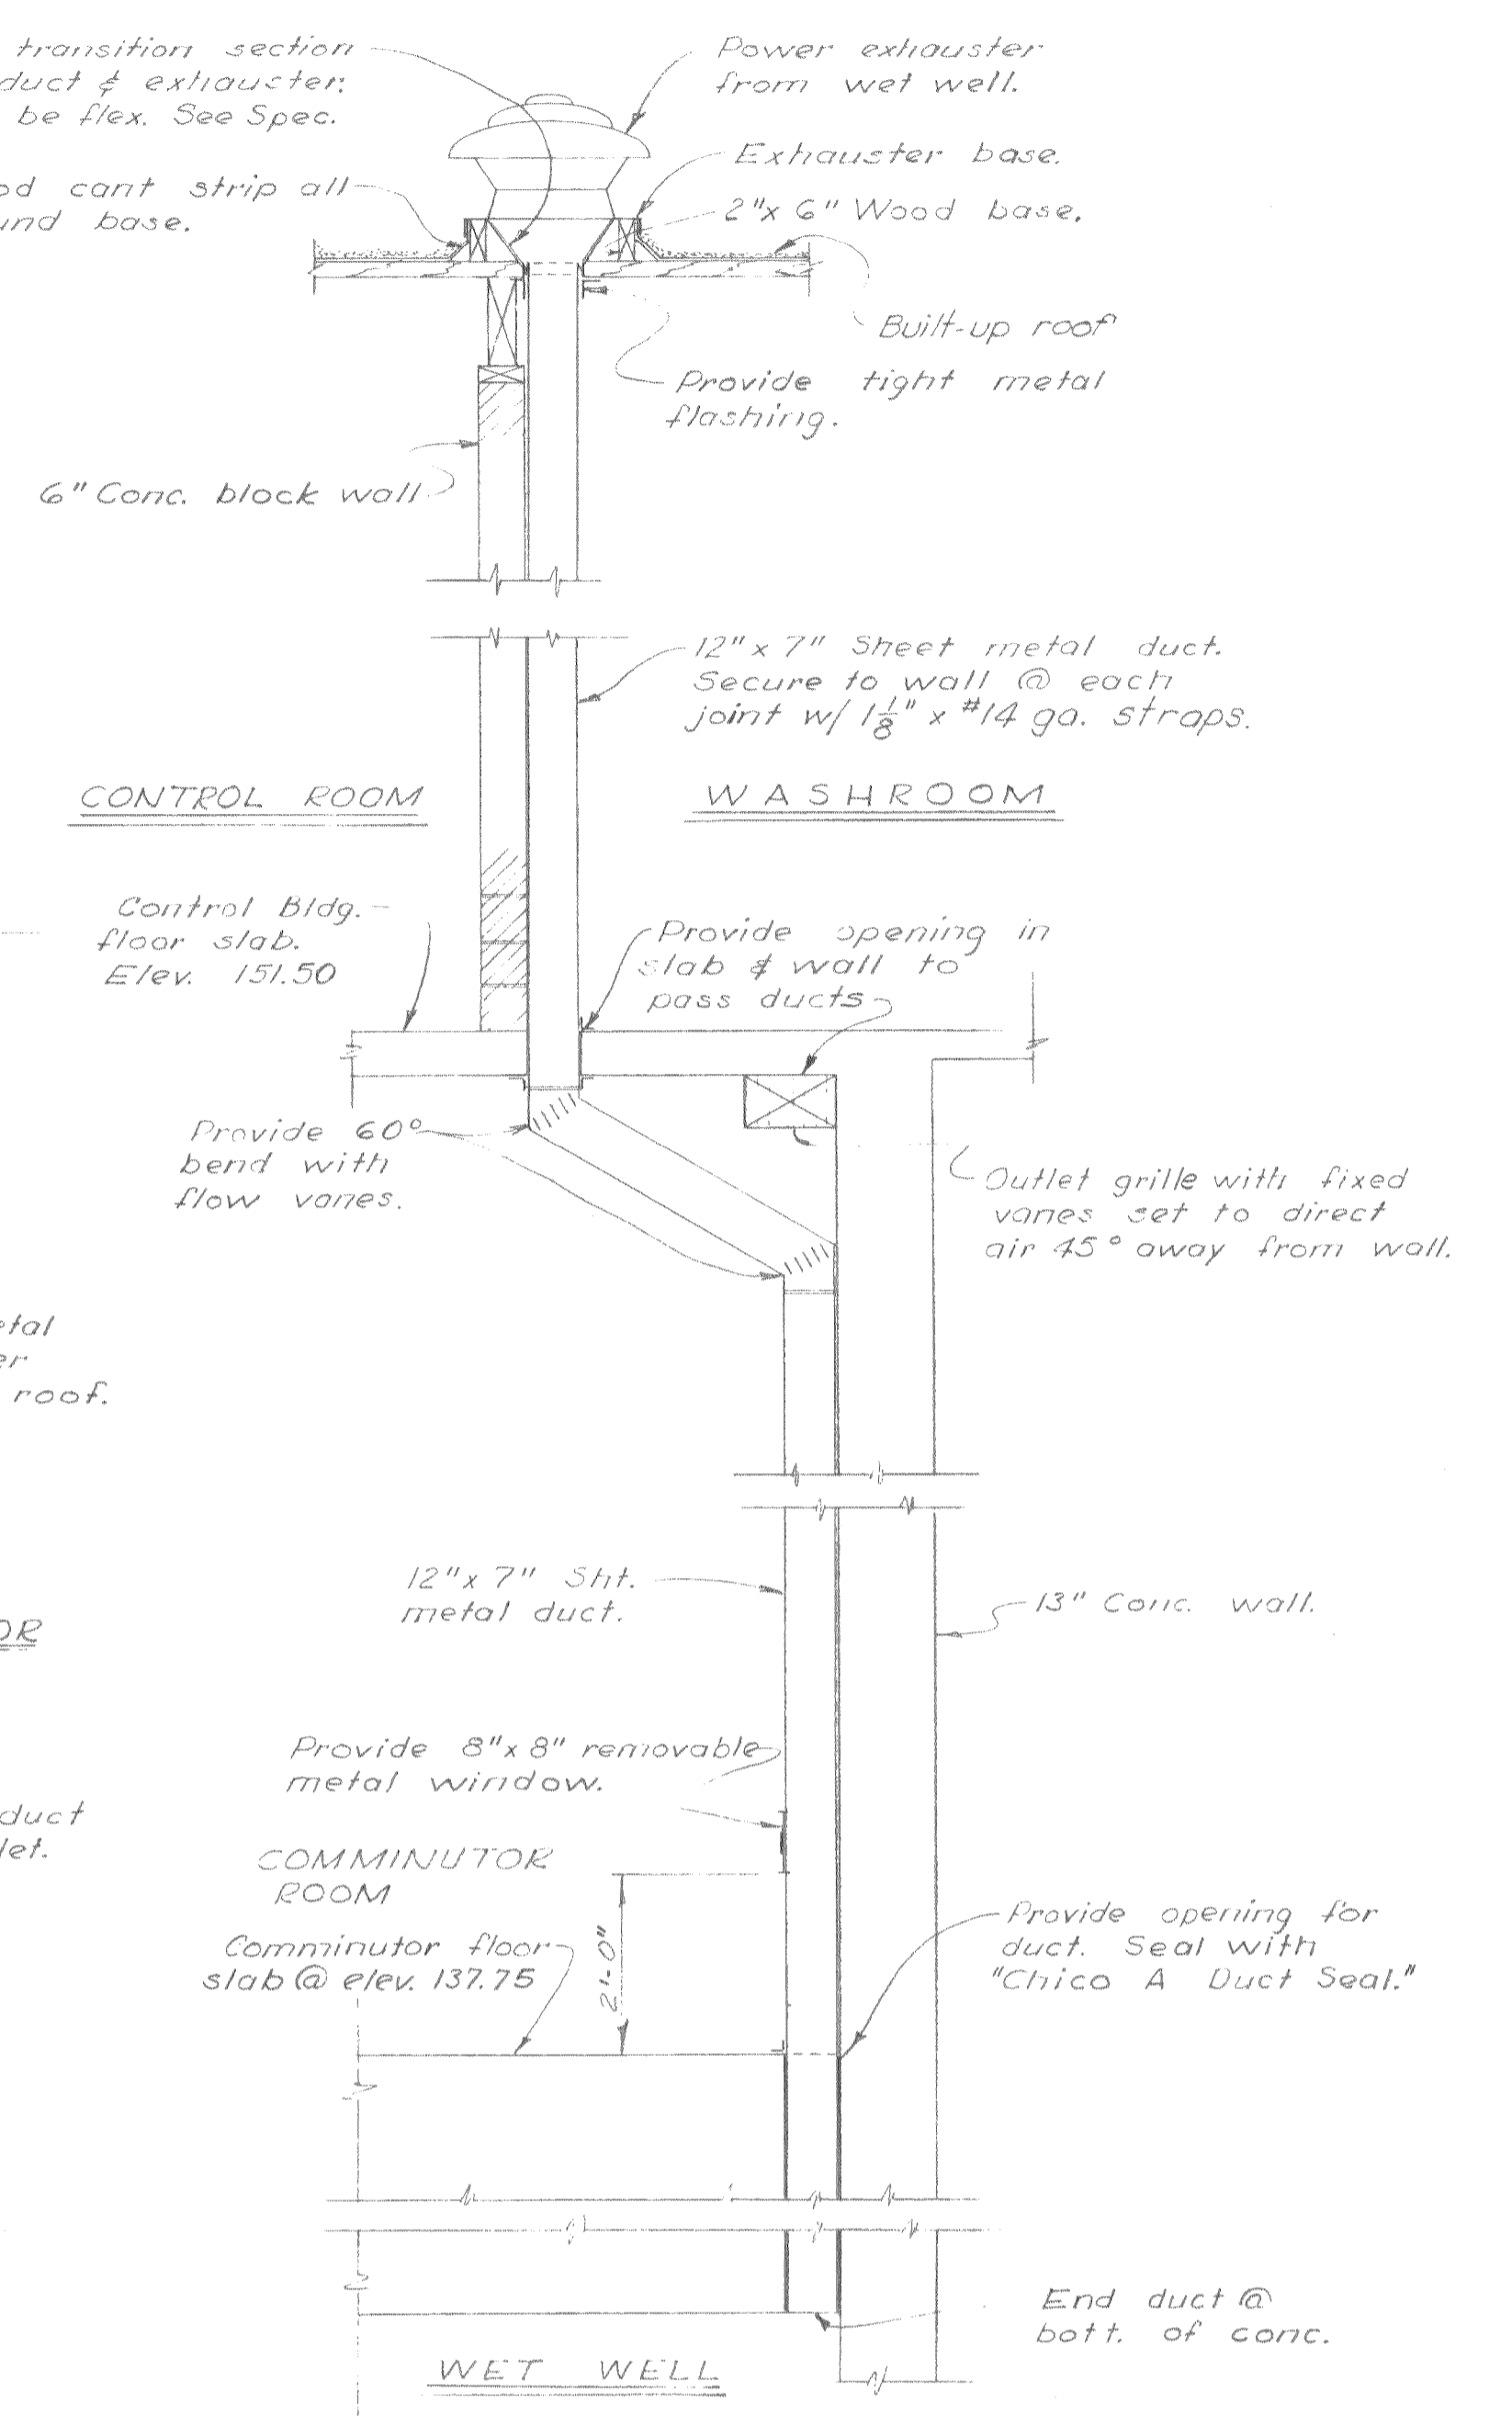 transition section
duct & exhauster.
be flex. See Spec.
Power exhauster
from wet well.
cant strip all
base.
Exhauster base.
2" x 6" Wood base.
Built-up roof
Provide tight metal
flashing.
6" Conc. block wall
12" x 7" Sheet metal duct.
Secure to wall @ each
joint w/ 1 1/8" x #14 ga. straps.
CONTROL ROOM
WASHROOM
Control Bldg.
floor slab.
Elev. 151.50
Provide opening in
slab & wall to
pass ducts
Provide 60°
bend with
flow vanes.
Outlet grille with fixed
vanes set to direct
air 45° away from wall.
roof.
12" x 7" Sht.
metal duct.
13" Conc. wall.
Provide 8" x 8" removable
metal window.
duct
COMMINUTOR
ROOM
2'-0"
Comminutor floor
slab @ elev. 137.75
Provide opening for
duct. Seal with
"Chico A Duct Seal."
End duct @
bott. of conc.
WET WELL